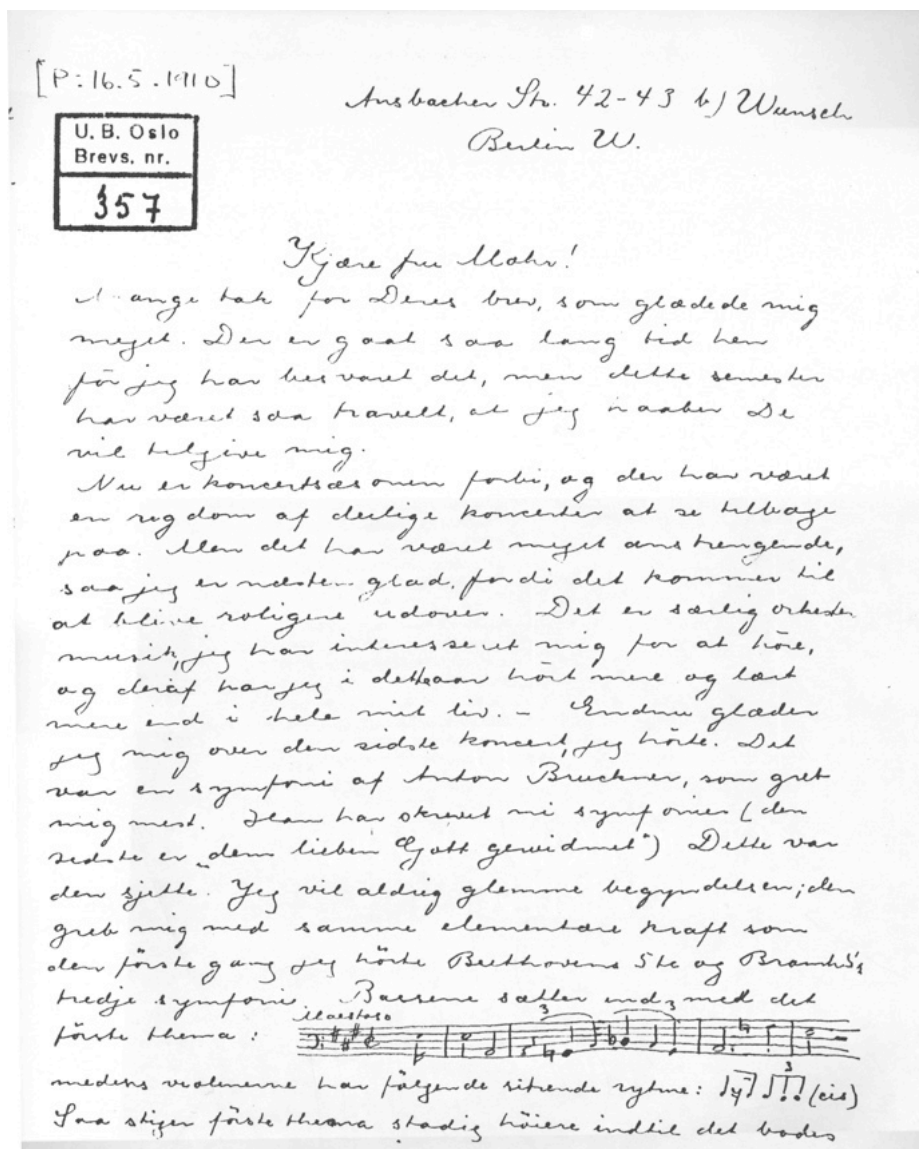 [P: 16.5.1910]
U. B. Oslo
Brevs. nr.
357
Ansbacher Str. 42-43 b) Wunsch
Berlin W.
Kjære fru Mohr!
Mange tak for Deres brev, som glædede mig
meget. Der er gaat saa lang tid hen
før jeg har besvaret det, men dette semester
har været saa travelt, at jeg haaber De
vil tilgive mig.
Nu er koncertsæsonen forbi, og der har været
en rigdom af deilige koncerter at se tilbage
paa. Men det har været meget anstrengende,
saa jeg er næsten glad, fordi det kommer til
at blive roligere udover. Det er særlig orkester
musik, jeg har interesseret mig for at høre,
og deraf har jeg i dette aar hört mere og lært
mere end i hele mit liv. – Endnu glæder
jeg mig over den sidste koncert, jeg hörte. Det
var en symfoni af Anton Bruckner, som greb
mig mest. Han har skrevet ni symfonier (den
sidste er „dem lieben Gott gewidmet") Dette var
den sjette. Jeg vil aldrig glemme begyndelsen; den
greb mig med samme elementære kraft som
den förste gang jeg hörte Beethovens 5te og Bramhs's
tredje symfoni. Bassene sætter ind med det
Maestoso
3
förste thema:
medens violinerne har fölgende sitrende rytme: 3 (cis)
Saa stiger förste thema stadig höiere indtil det bades